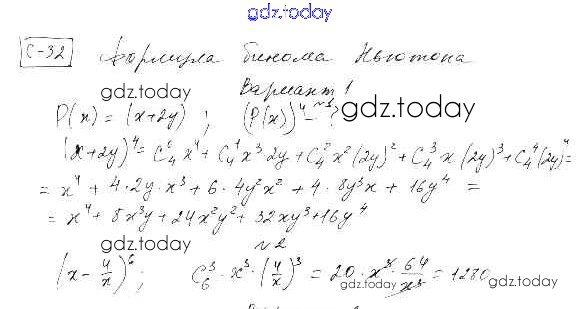 gdz.today
С-32 Формула бинома Ньютона
Вариант 1
gdz.today
№1 gdz.today
P(x) = (x+2y) ; (P(x))⁴ – ?
(x+2y)⁴ = C₄⁰x⁴ + C₄¹x³·2y + C₄²x²(2y)² + C₄³·x(2y)³ + C₄⁴(2y)⁴ =
= x⁴ + 4·2y·x³ + 6·4y²x² + 4·8y³x + 16y⁴ =
= x⁴ + 8x³y + 24x²y² + 32xy³ + 16y⁴
gdz.today №2
(x - 4/x)⁶ ; C₆³·x³·(4/x)³ = 20·x³·64/x³ = 1280
gdz.today gdz.today